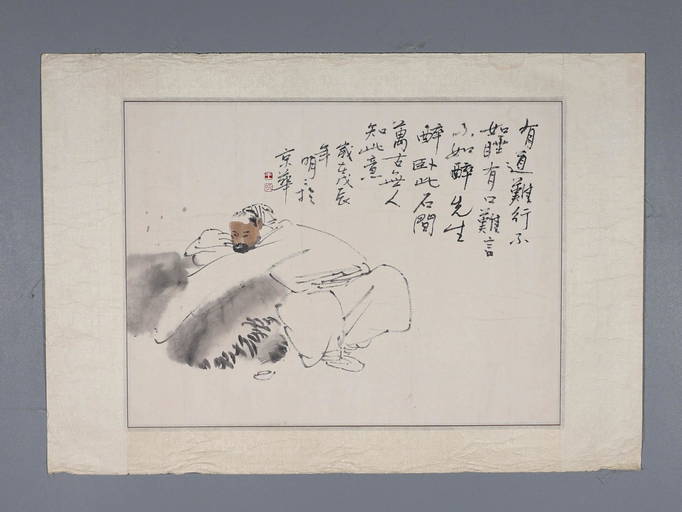 有道難行不
如睡有口難言
不如醉先生
醉卧此石間
萬古無人
知此意
歲在戊辰
年
明於
京華